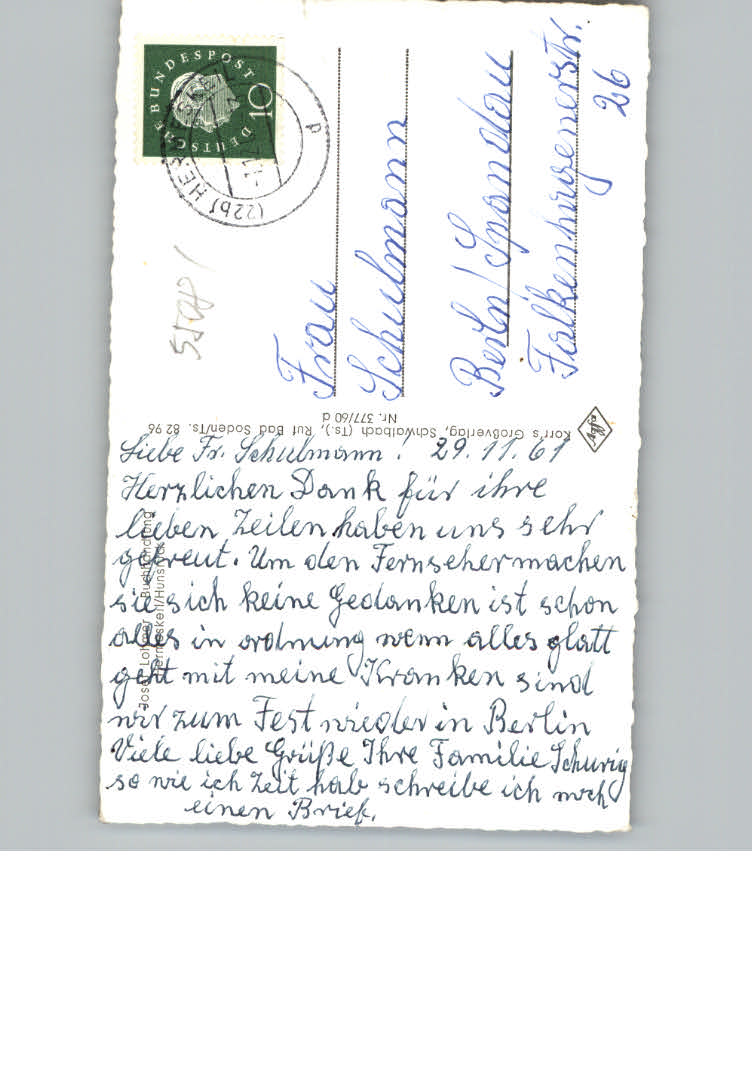 Liebe Fr. Schulmann! 29.11.61
Herzlichen Dank für ihre
lieben Zeilen haben uns sehr
gefreut. Um den Fernseher machen
sie sich keine Gedanken ist schon
alles in ordnung wenn alles glatt
geht mit meine Kranken sind
wir zum Fest wieder in Berlin
Viele liebe Grüße Ihre Familie Schurig
so wie ich Zeit hab schreibe ich noch
einen Brief.
Frau
Schulmann
Berlin/Spandau
Falkenhagenerstr.
26
DEUTSCHE BUNDESPOST
10
(22b) HERMESKEIL
p
Korr's Großverlag, Schwalbach (Ts.), Ruf Bad Soden/Ts. 82 96
Nr. 377/60 d
Buchhandlung
Hermeskeil/Hunsrück